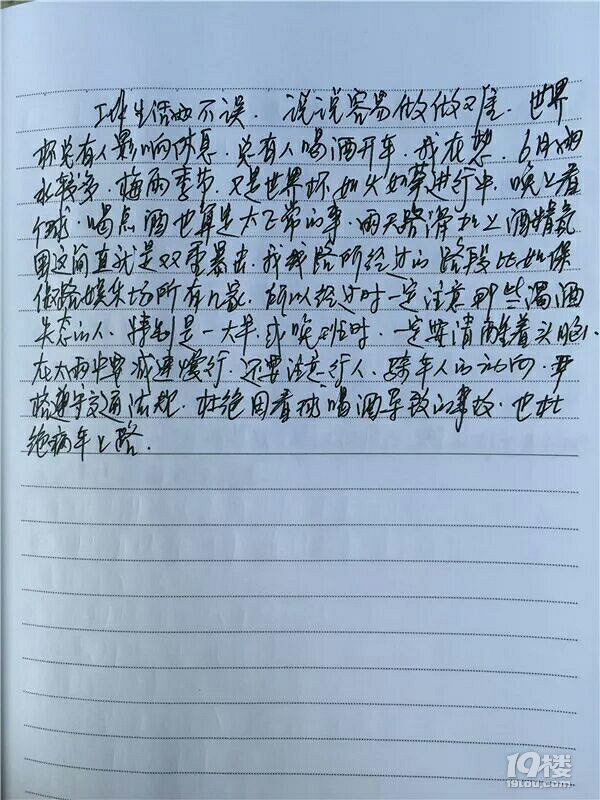 工作生活两不误. 说说容易做做又难. 世界
杯总有人影响休息. 总有人喝酒开车. 我在想. 6月雨
水较多. 梅雨季节. 又是世界杯如火如荼进行中. 晚上看
个球. 喝点酒也算是太正常的事. 雨天路滑加上酒精氛
围这简直就是双重暴击. 我线路所经过的路段比如保
俶路娱乐场所有几家. 所以经过时一定注意那些喝酒
失态的人. 特别是一大早或晚班时. 一定要清醒着头脑.
在大雨中要减速慢行. 还要注意行人、骑车人的动向. 严
格遵守交通法规. 杜绝因看球喝酒导致的事故. 也杜
绝病车上路.
19楼
19lou.com